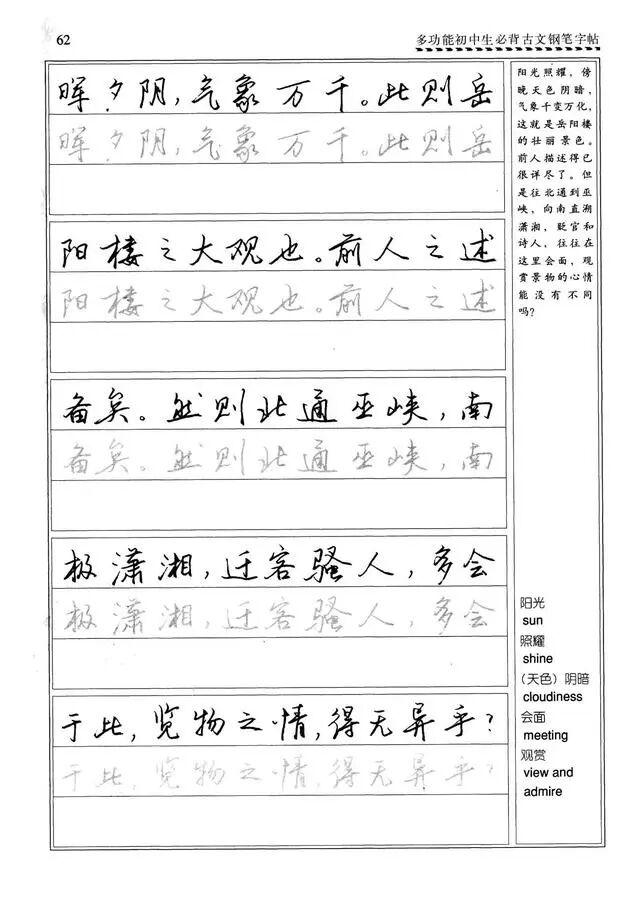 62
多功能初中生必背古文钢笔字帖
晖夕阴，气象万千。此则岳
晖夕阴，气象万千。此则岳
阳楼之大观也。前人之述
阳楼之大观也。前人之述
备矣。然则北通巫峡，南
备矣。然则北通巫峡，南
极潇湘，迁客骚人，多会
极潇湘，迁客骚人，多会
于此，览物之情，得无异乎？
于此，览物之情，得无异乎？
阳光照耀，傍
晚天色阴暗，
气象千变万化，
这就是岳阳楼
的壮丽景色。
前人描述得已
很详尽了。但
是往北通到巫
峡，向南直溯
潇湘，贬官和
诗人，往往在
这里会面，观
赏景物的心情
能没有不同
吗？
阳光
sun
照耀
shine
（天色）阴暗
cloudiness
会面
meeting
观赏
view and
admire